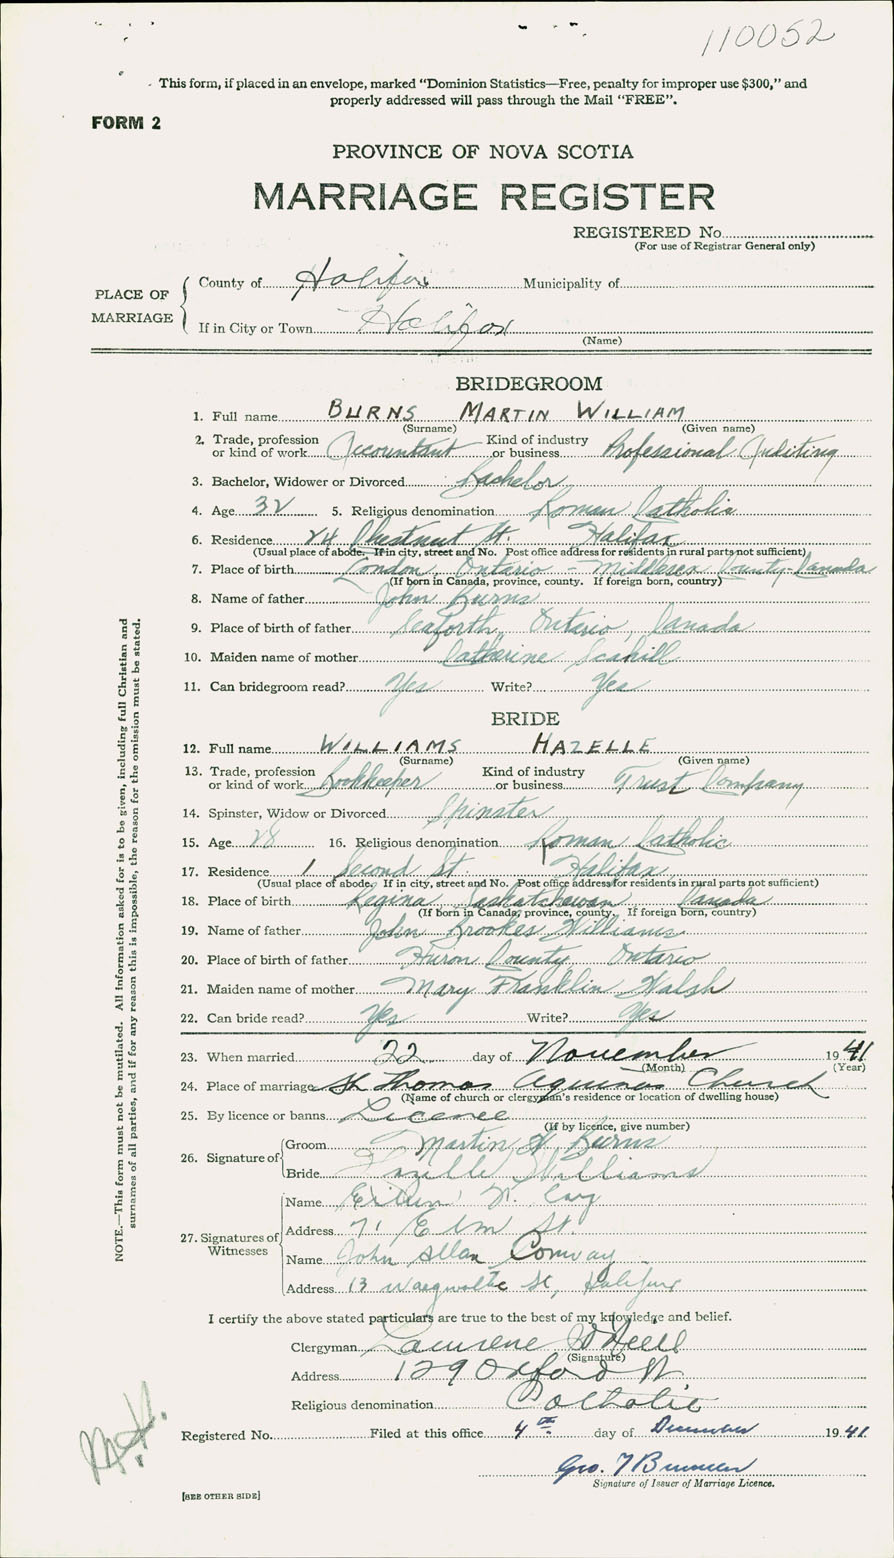 110052
This form, if placed in an envelope, marked "Dominion Statistics—Free, penalty for improper use $300," and
properly addressed will pass through the Mail "FREE".
FORM 2
PROVINCE OF NOVA SCOTIA
MARRIAGE REGISTER
REGISTERED No.
(For use of Registrar General only)
PLACE OF MARRIAGE
County of Halifax Municipality of
If in City or Town Halifax
(Name)
BRIDEGROOM
1. Full name BURNS MARTIN WILLIAM
(Surname) (Given name)
2. Trade, profession or kind of work Accountant Kind of industry or business Professional Auditing
3. Bachelor, Widower or Divorced Bachelor
4. Age 32 5. Religious denomination Roman Catholic
6. Residence 24 Chestnut St. Halifax
(Usual place of abode. If in city, street and No. Post office address for residents in rural parts not sufficient)
7. Place of birth London, Ontario - Middlesex County - Canada
(If born in Canada, province, county. If foreign born, country)
8. Name of father John Burns
9. Place of birth of father Seaforth, Ontario, Canada
10. Maiden name of mother Catherine Scahill
11. Can bridegroom read? Yes Write? Yes
BRIDE
12. Full name WILLIAMS HAZELLE
(Surname) (Given name)
13. Trade, profession or kind of work Bookkeeper Kind of industry or business Trust Company
14. Spinster, Widow or Divorced Spinster
15. Age 28 16. Religious denomination Roman Catholic
17. Residence 1 Second St. Halifax
(Usual place of abode. If in city, street and No. Post office address for residents in rural parts not sufficient)
18. Place of birth Regina Saskatchewan Canada
(If born in Canada, province, county. If foreign born, country)
19. Name of father John Brookes Williams
20. Place of birth of father Huron County Ontario
21. Maiden name of mother Mary Franklin Walsh
22. Can bride read? Yes Write? Yes
23. When married 22 day of November 1941
(Month) (Year)
24. Place of marriage St. Thomas Aquinas Church
(Name of church or clergyman's residence or location of dwelling house)
25. By licence or banns Licence
(If by licence, give number)
26. Signature of
Groom Martin W. Burns
Bride Hazelle Williams
27. Signatures of Witnesses
Name
Address 71 Elm St.
Name John Allan Conway
Address 13 St, Halifax
I certify the above stated particulars are true to the best of my knowledge and belief.
Clergyman
(Signature)
Address 129 Oxford St.
Religious denomination Catholic
Registered No. Filed at this office 4th day of December 1941
Geo.
Signature of Issuer of Marriage Licence.
[SEE OTHER SIDE]
NOTE.—This form must not be mutilated. All information asked for is to be given, including full Christian and
surnames of all parties, and if for any reason this is impossible, the reason for the omission must be stated.